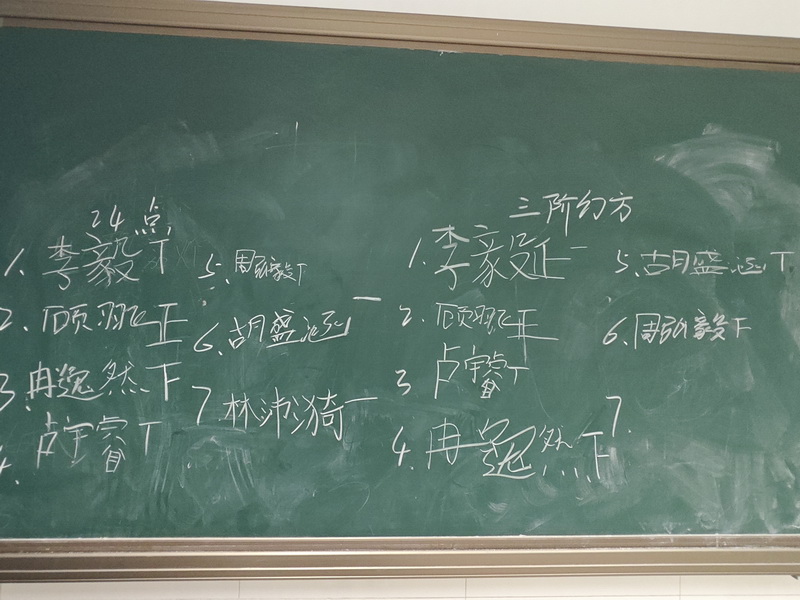 24点
1. 李毅 丅
2. 顾翌飞 正
3. 冉逸然 下
4. 卢宇睿 丅
5. 周弘毅 下
6. 胡盛涵 一
7 林沛漪 一
三阶幻方
1. 李毅 正一
2. 顾翌飞 正
3 卢宇睿 丅
4. 冉逸然 下
5. 胡盛涵 丅
6. 周弘毅 下
7.